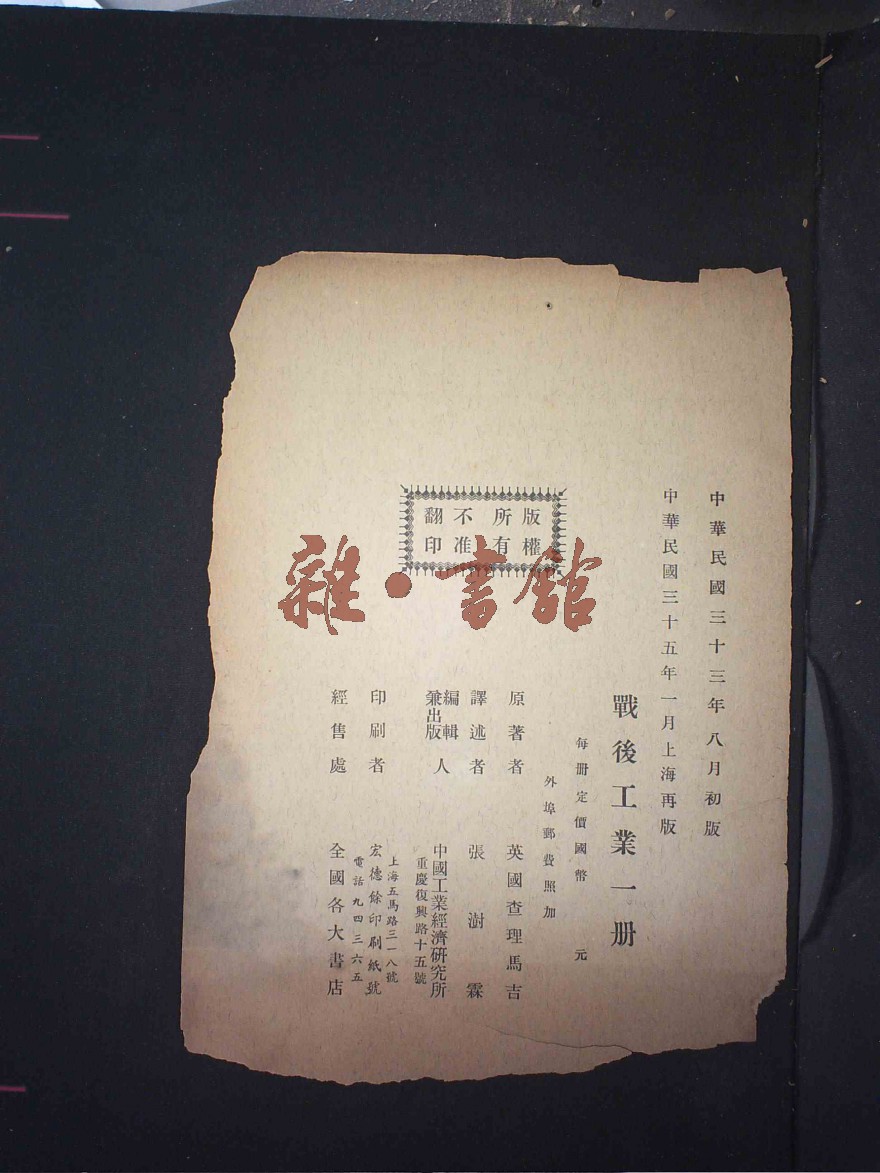 中華民國三十三年八月初版
中華民國三十五年一月上海再版
戰後工業一册
每册定價國幣 元
外埠郵費照加
版權所有
不准翻印
原著者 英國查理馬吉
譯述者 張澍霖
編輯兼出版人 中國工業經濟研究所
重慶復興路十五號
印刷者 宏德餘印刷紙號
上海五馬路三一八號
電話九四三六五
經售處 全國各大書店
雜·書館